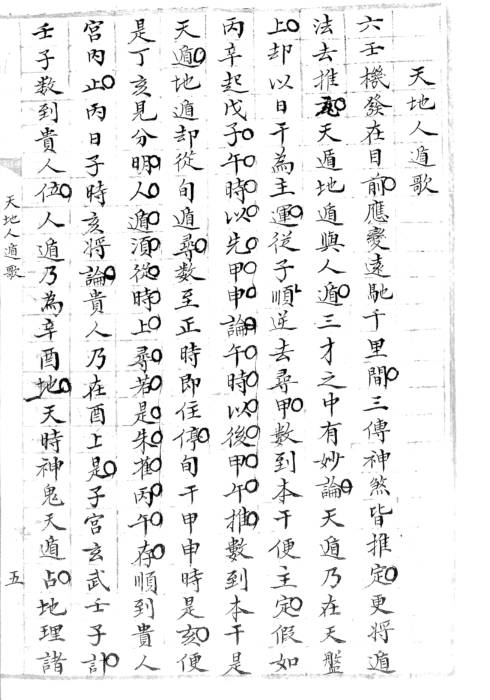 天地人遁歌
六壬機發在目前○應變遠馳千里間○三傳神煞皆推定○更將遁
法去推○天遁地遁與人遁○三才之中有妙論○天遁乃在天盤
上○却以日干為主運○從子順逆去尋甲○數到本干便主定○假如
丙辛起戊子○午時以先甲申論○午時以後甲午推○數到本干是
天遁○地遁却從旬遁尋○數至正時即住停○旬干甲申時是亥○便
是丁亥見分明○人遁須從時上尋○若是朱雀丙午存○順到貴人
宮內止○丙日子時亥將論○貴人乃在酉上是○子宮玄武壬子計○
壬子數到貴人位○人遁乃為辛酉地○天時神鬼天遁占○地理諸
天地人遁歌
五